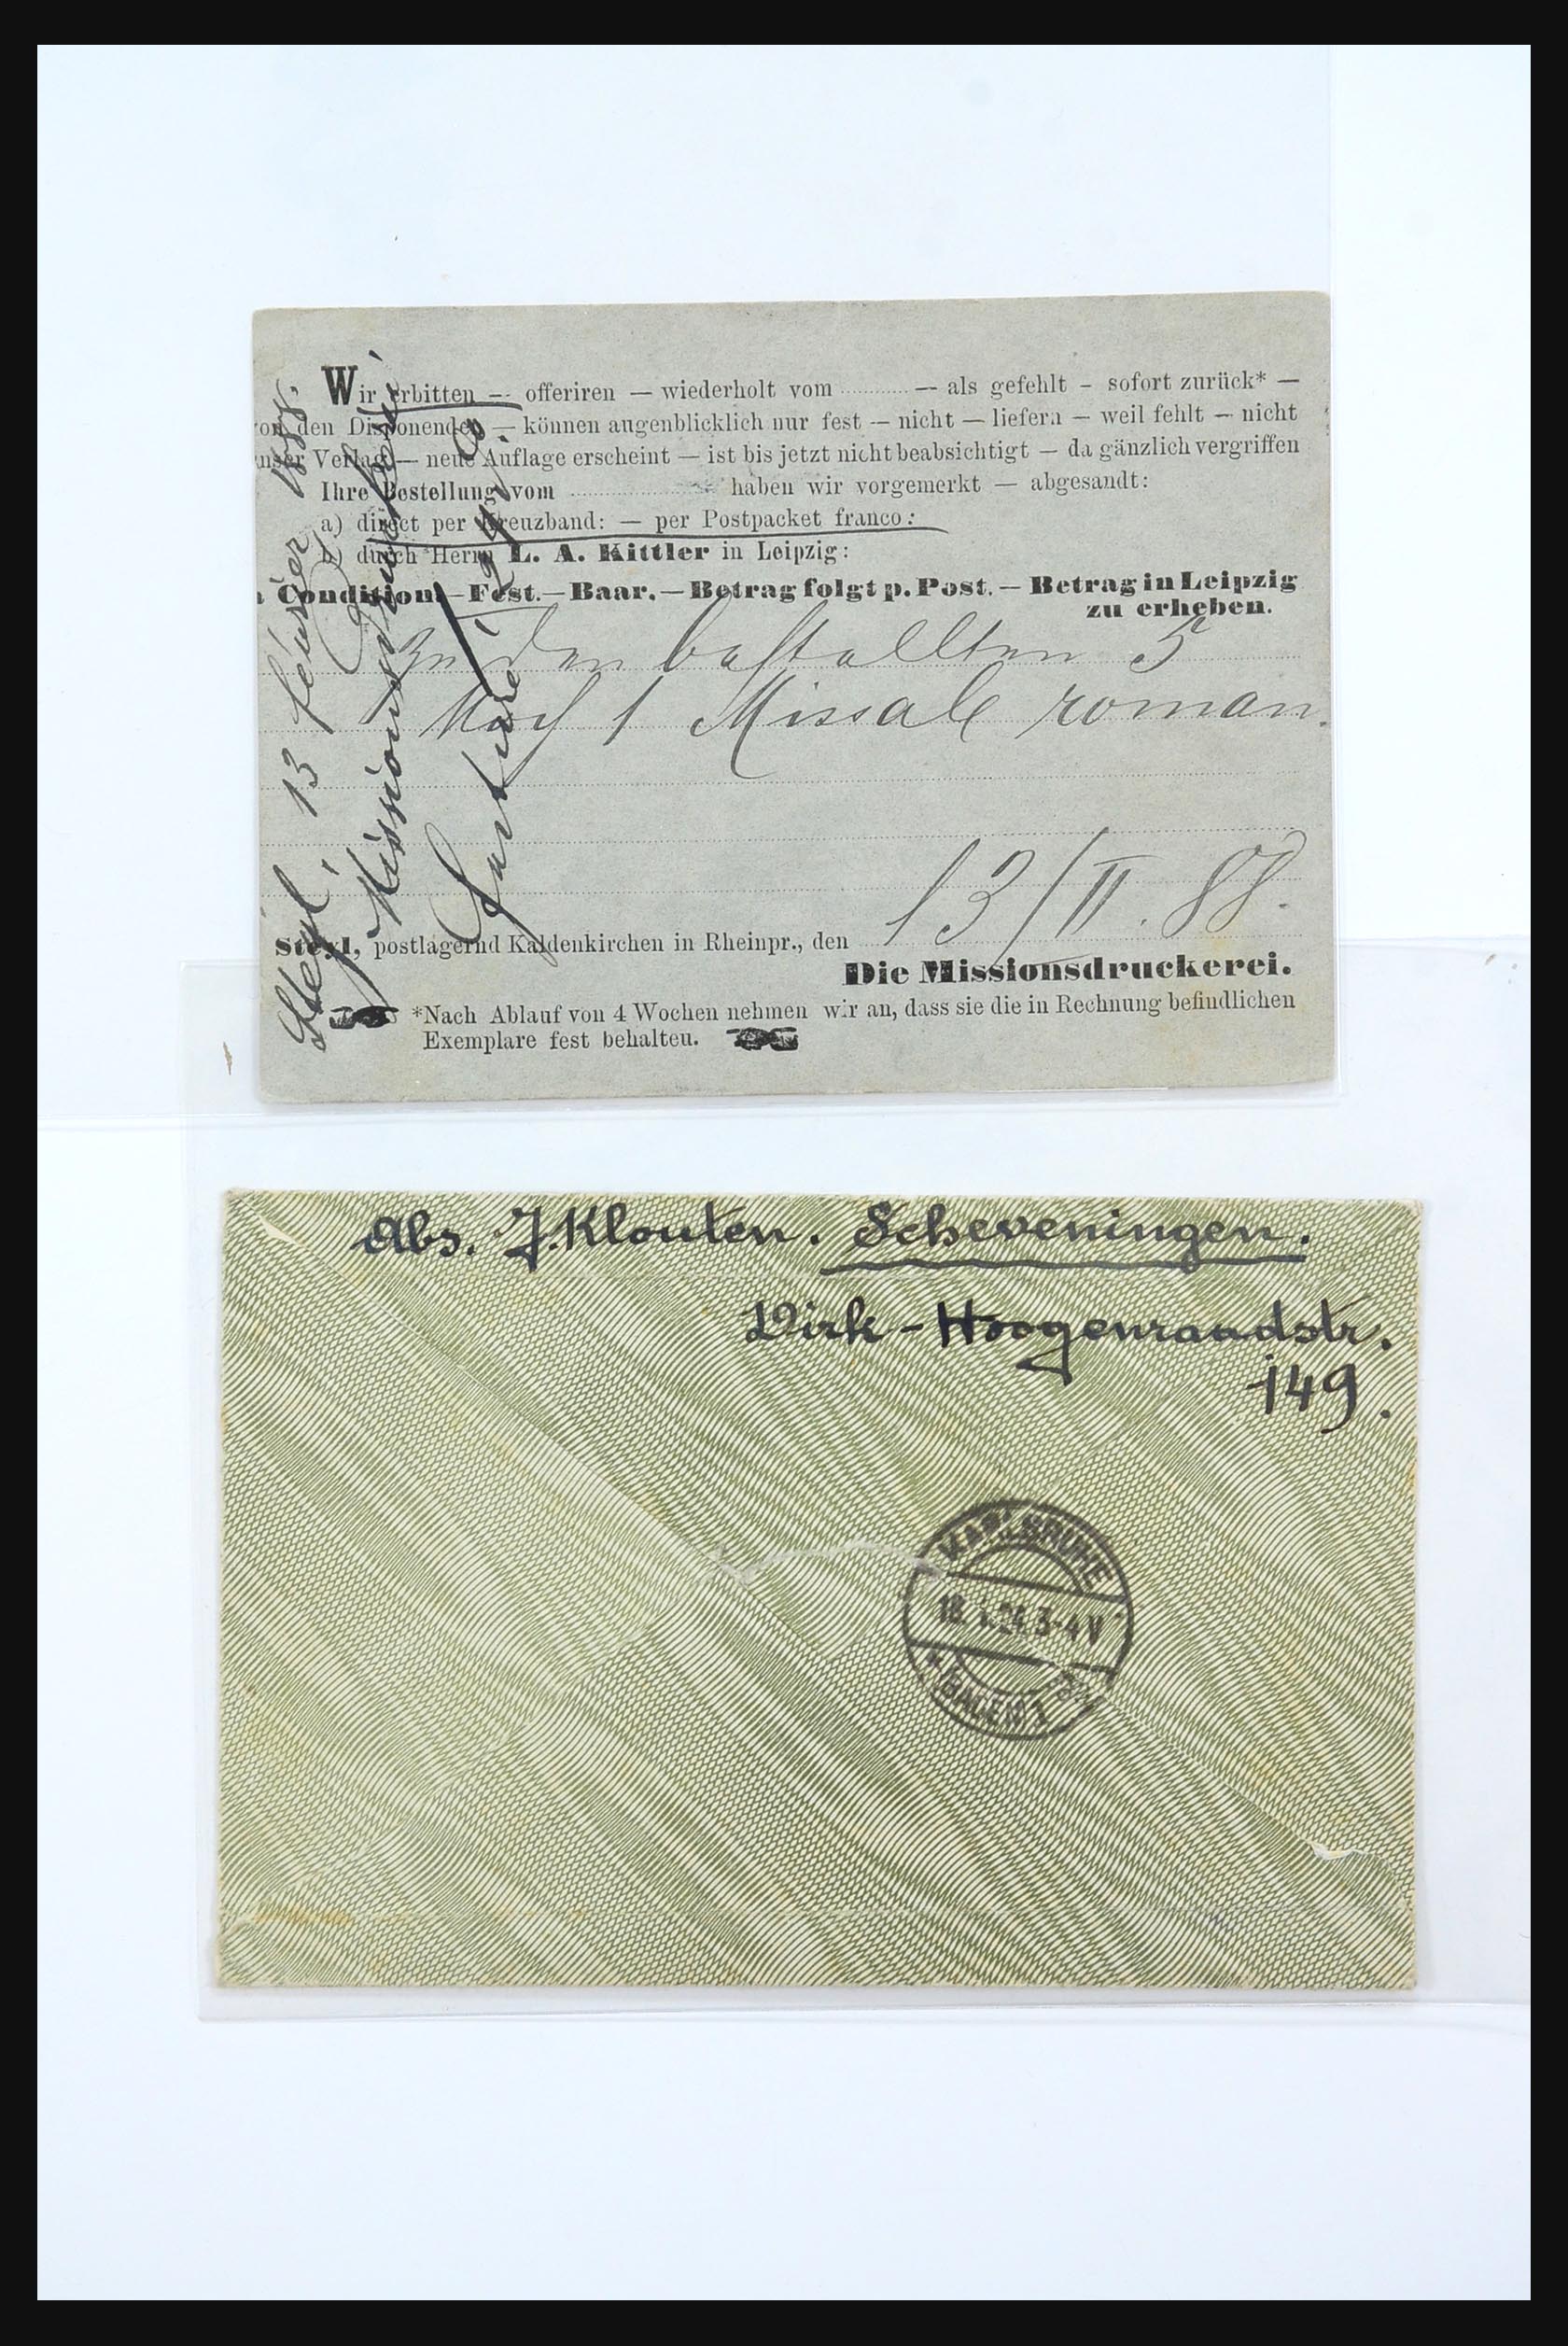 Wir erbitten — offeriren — wiederholt vom ............ — als gefehlt – sofort zurück* —
den Disponenden — können augenblicklich nur fest — nicht — liefern — weil fehlt — nicht
unser Verlag — neue Auflage erscheint — ist bis jetzt nicht beabsichtigt — da gänzlich vergriffen
Ihre Bestellung vom ............ haben wir vorgemerkt — abgesandt:
a) direct per Kreuzband: — per Postpacket franco:
b) durch Herrn L. A. Kittler in Leipzig:
Condition. — Fest. — Baar. — Betrag folgt p. Post. — Betrag in Leipzig
zu erheben.
Zu den bestellten 5
Noch 1 Missale roman.
13/II. 88.
Steyl, postlagernd Kaldenkirchen in Rheinpr., den
Die Missionsdruckerei.
*Nach Ablauf von 4 Wochen nehmen wir an, dass sie die in Rechnung befindlichen
Exemplare fest behalten.
Steyl, 13 février 1888.
Missionsdruckerei
Abs. J. Klouten. Scheveningen.
Dirk-Hoogenraadstr.
149.
KARLSRUHE
3-4 V
(BADEN) 1